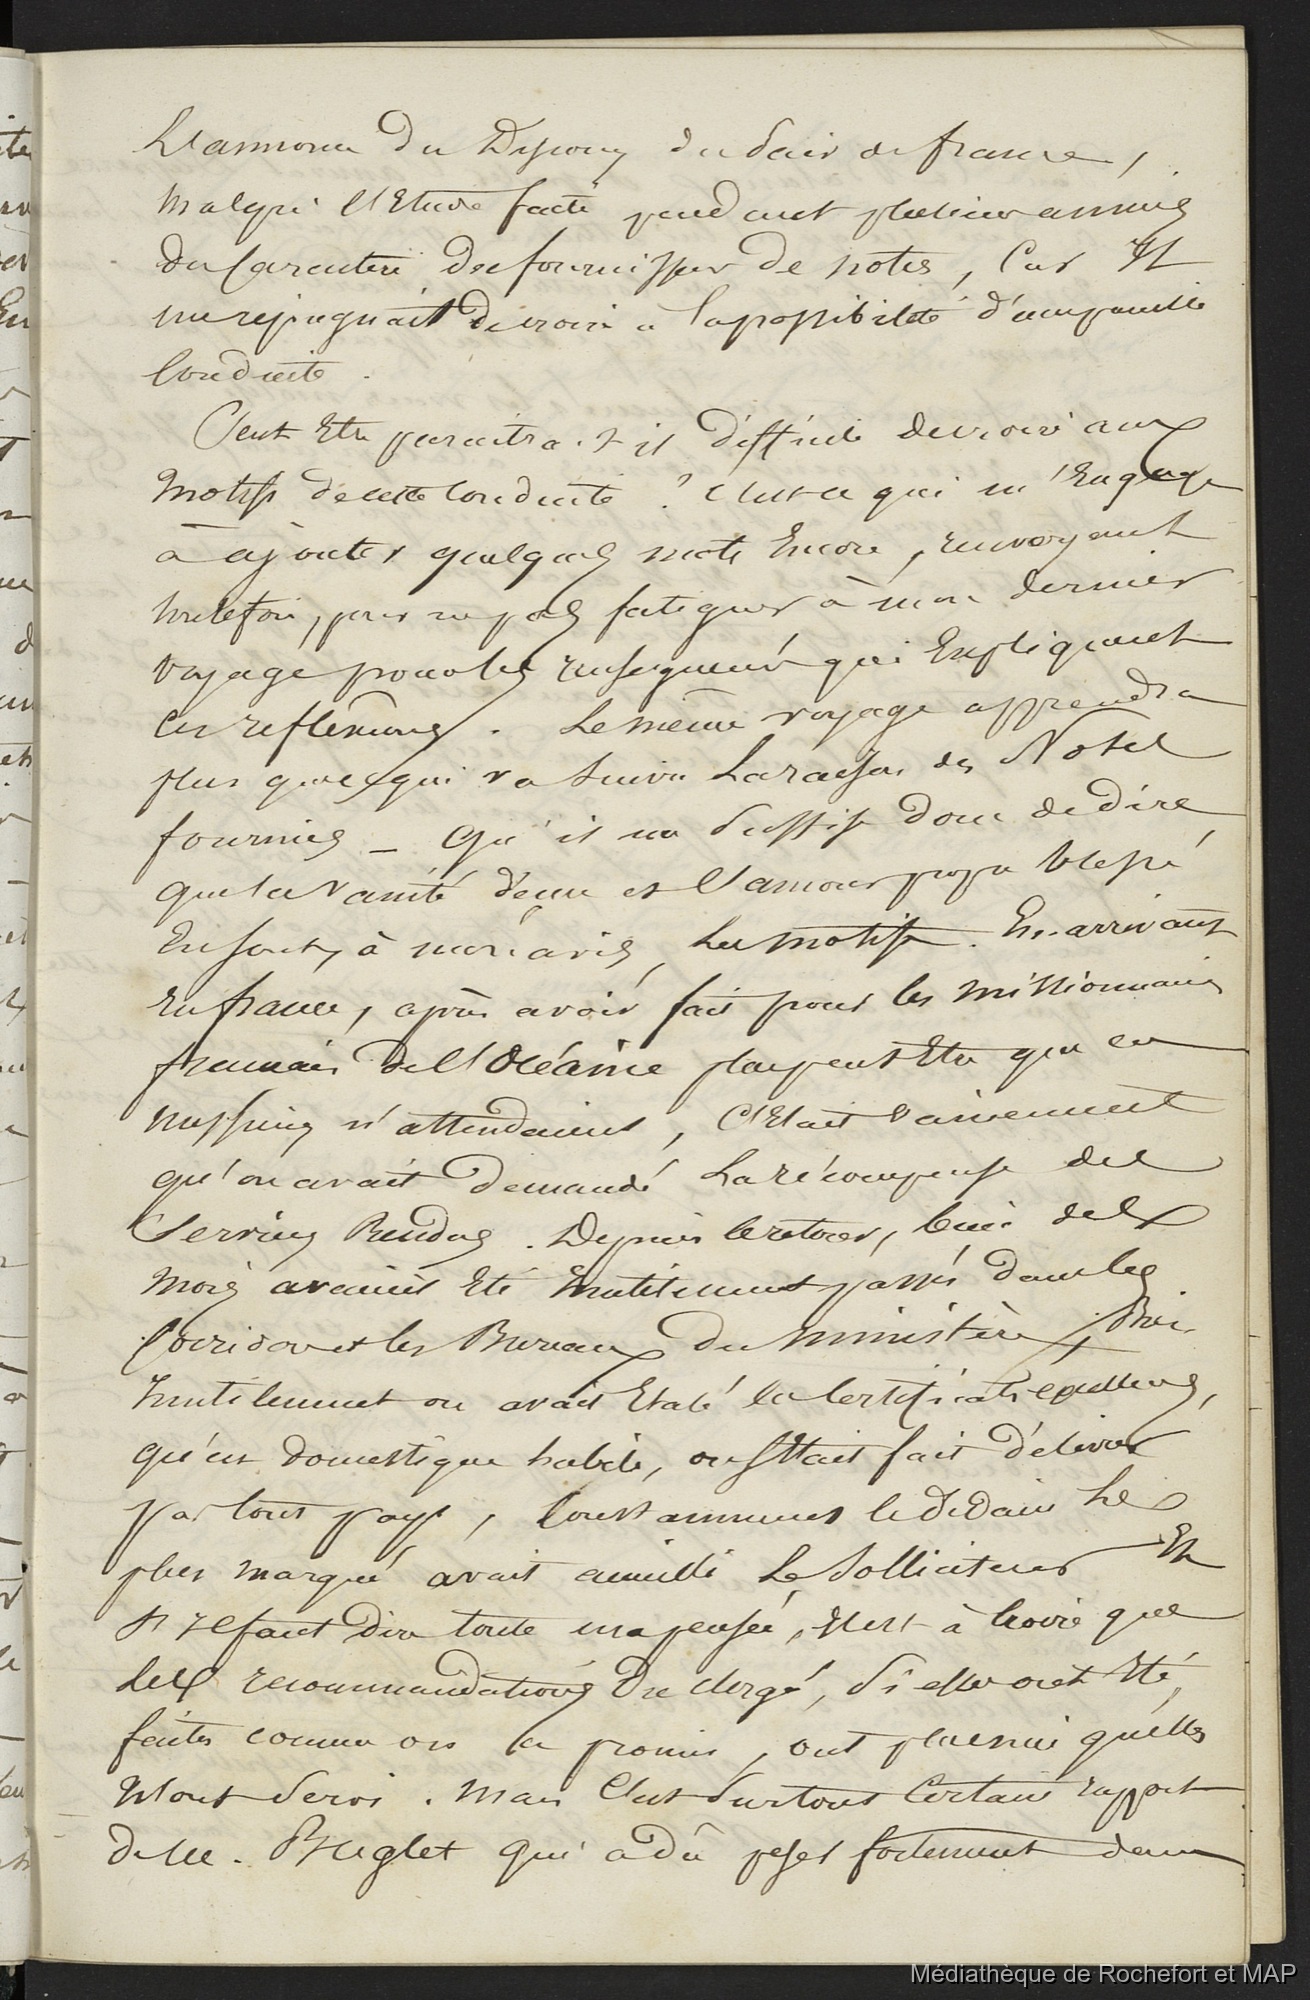 L'annonce du Discours du Pair de france,
malgré l'Etude faite pendant plusieurs années
du Caractère des fournisseur de notes, Car Il
me répugnait de croire a la possibilité d'une pareille
Conduite.
Peut Etre paraitra-t-il difficile de croire aux
motifs de cette Conduite ? C'est ce qui m'Engage
à ajouter quelques mots Encore, renvoyant
toutefois, pour ne pas fatiguer à mon dernier
voyage pour les qui Expliquent
ces reflexions. Le même voyage apprendra
plus que ce qui va suivre La raison des Notes
fournies – Qu'il me suffise donc de dire
que la Vanité déçue et l'amour propre blessé
En sont, à mon avis, Les motifs. En arrivant
En france, après avoir fait pour les missionnaires
français de l'Océanie plus peut Etre que ces
messieurs n'attendaient, C'Etait vainement
qu'on avait demandé La récompense des
Services Rendus. Depuis le retour, bien des
mois avaient Eté Inutilement passés dans les
Corridors et les Bureaux du ministère, Bien
Inutilement on avait Etalé les Certificats
qu'en domestique habile, on s'Etait fait délivrer
par tous pays, Constamment le dédain Le
plus marqué avait accueilli Le Solliciteur Et
s'il faut dire toute ma pensée, Il est à Croire que
Les recommandations du clergé, Si elles ont Eté
faites comme on l'a promis, ont plus nui qu'elles
N'ont Servi. Mais C'est Surtout Certain rapport
de M. Buglet qui a dû peser fortement dans